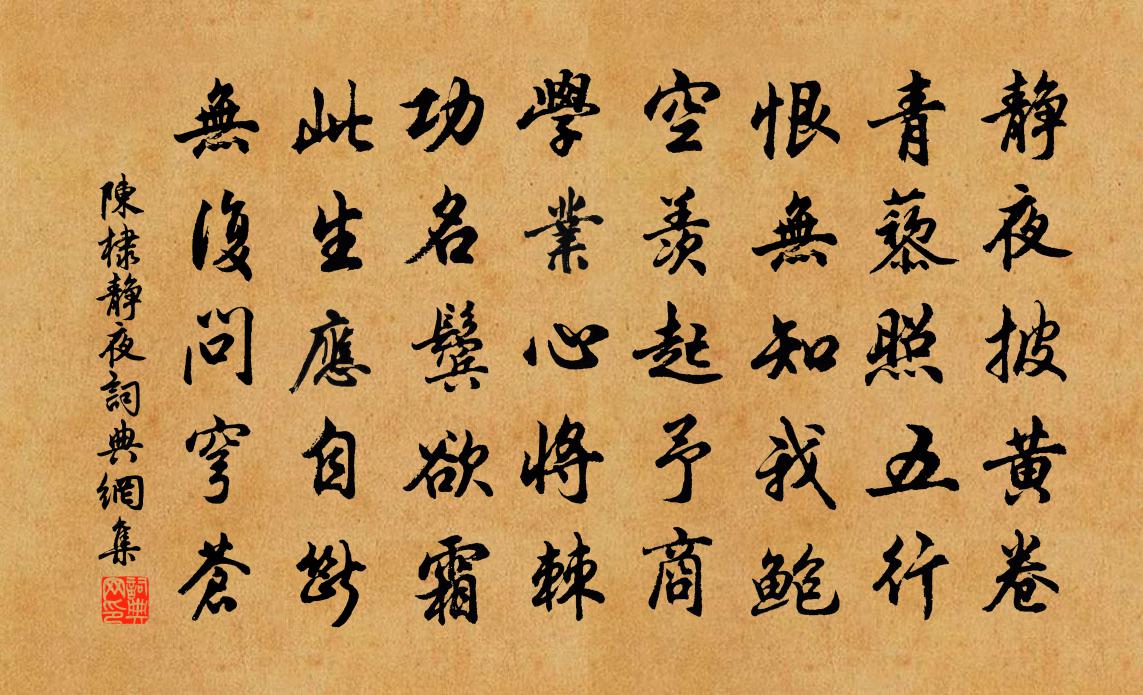 静夜披黄卷
青藜照五行
恨無知我鮑
空羨起予商
學業心將棘
功名鬓欲霜
此生應自斷
無復問穹蒼
陳棣静夜詞典網集
詞典网印